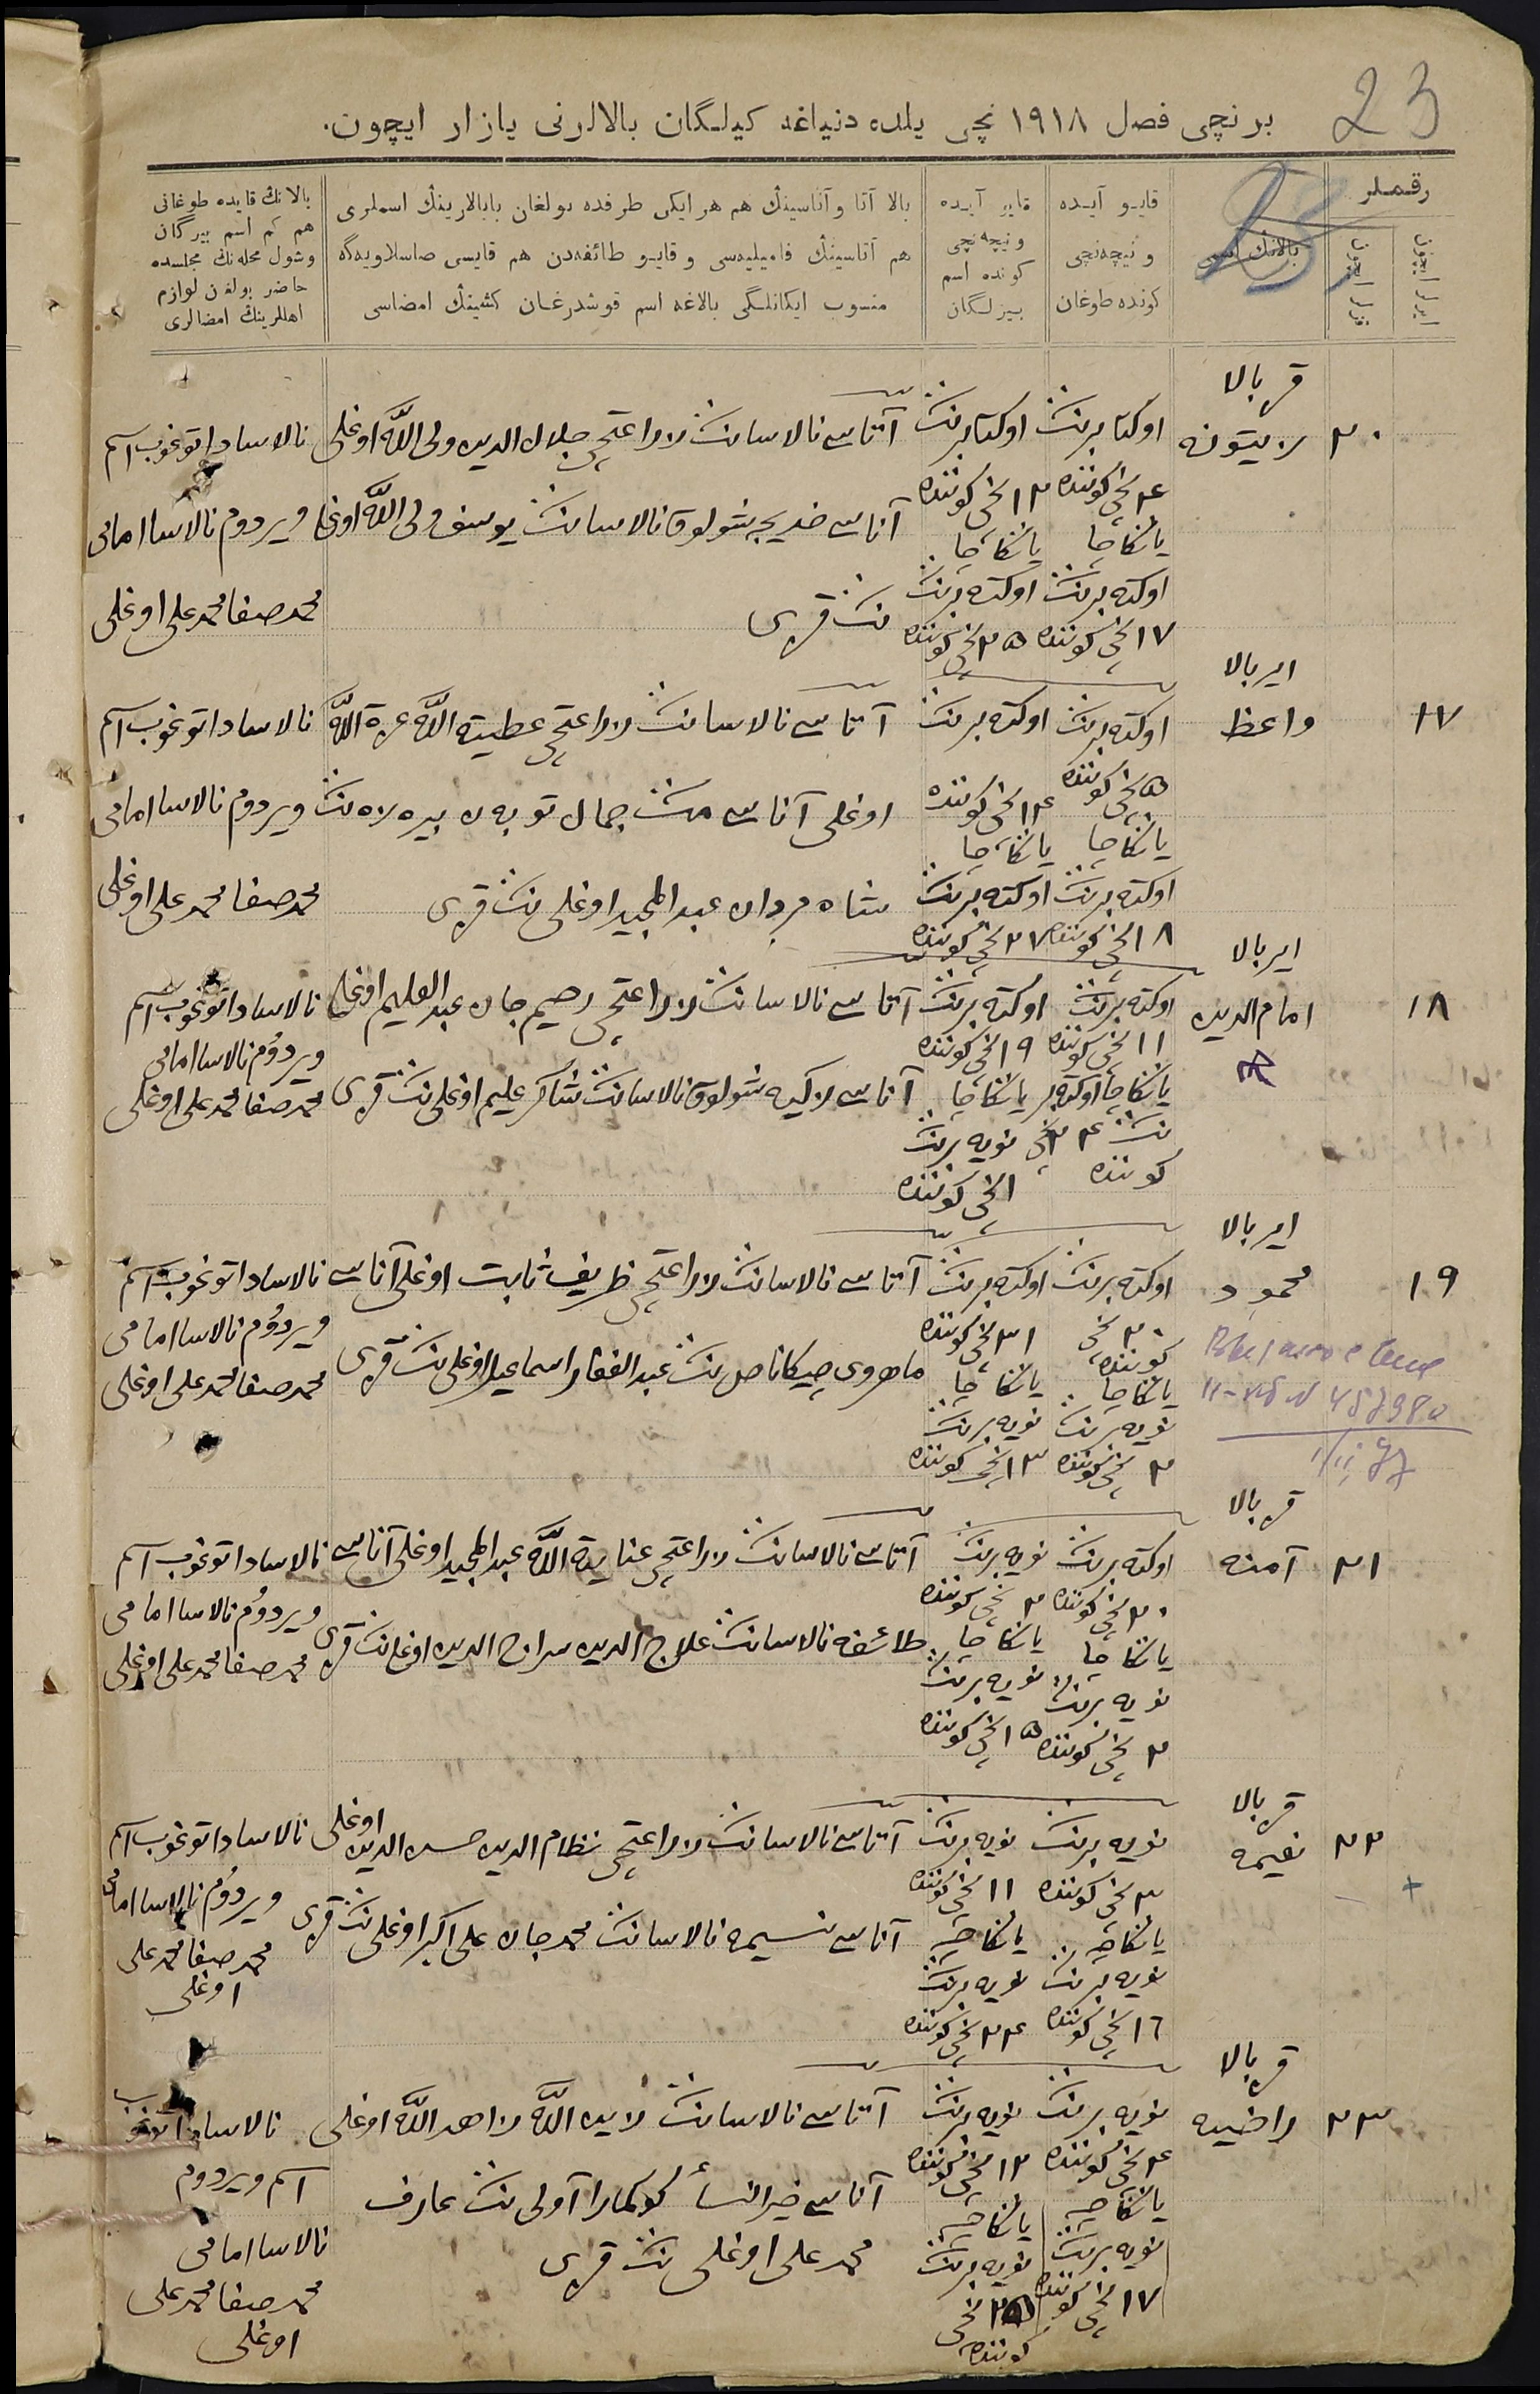 23
برنچی فصل ١٩١٨ نچی یلده دنیاغه کیلـگان بالالرنی یازار ایچون.
رقملر
ایرلر ایچون
قزلر ایچون
بالانڭ اسمی
قایـو آیـده
و نیچه‌نچی
کونده طوغان
قایو آیـده
و نیچه‌نچی
کونده اسم
بیرلـگان
بالا آتا و آناسینڭ هم هر ایکی طرفده بولغان بابالارینڭ اسملری
هم آتاسینڭ فامیلیه‌سی و قایـو طائفه‌دن هم قایسی صاسلاویه‌گه
منسوب ایکانلـگی بالاغه اسم قوشدرغـان کشینڭ امضاسی
بالانڭ قایده طوغانی
هم کم اسم بیرگان
وشول محله‌نڭ مجلسده
حاضر بولغـن لوازم
اهللرینڭ امضالری
قز بالا
٢٠
زیتونه
اوکتابرنڭ
٤ نچی کوننده
یانکاچا
اوکته برنڭ
١٧ نچی کوننده
اوکتابرنڭ
١٢ نچی کوننده
یانکاچا
اوکته برنڭ
٢٥ نچی کوننده
آتاسی نالاسانڭ جلال الدین ولی الله اوغلی
آناسی خدیجه شولوق نالاسانڭ یوسف ولی الله اوغلی
نڭ قزی
نالاسادا توغوب اسم
ویردوم نالاسا امامی
محمد صفا محمد علی اوغلی
ایر بالا
١٧
واعظ
اوکته برنڭ
٥ نچی کوننده
یانکاچا
اوکته برنڭ
١٨ نچی کوننده
اوکته برنڭ
١٤ نچی کوننده
یانکاچا
اوکته برنڭ
٢٧ نچی کوننده
آتاسی نالاسانڭ عطیة الله عزة الله
اوغلی آناسی جمال
شاه مردان عبد المجید اوغلی نڭ قزی
نالاسادا توغوب اسم
ویردوم نالاسا امامی
محمد صفا محمد علی اوغلی
ایر بالا
١٨
امام الدین
اوکته برنڭ
١١ نچی کوننده
یانکاچا اوکته بر
نڭ ٢٤ نچی
کوننده
اوکته برنڭ
١٩ نچی کوننده
یانکاچا
نویه برنڭ
١ نچی کوننده
آتاسی نالاسانڭ رحیم جان عبد العلیم اوغلی
آناسی زکیه شولوق نالاسانڭ شاکر علیم اوغلی نڭ قزی
نالاسادا توغوب اسم
ویردوم نالاسا امامی
محمد صفا محمد علی اوغلی
ایر بالا
١٩
محمود
11- 457980
اوکته برنڭ
٢٠ نچی
کوننده
یانکاچا
نویه برنڭ
٢ نچی کوننده
اوکته برنڭ
٣١ نچی کوننده
یانکاچا
نویه برنڭ
١٣ نچی کوننده
آتاسی نالاسانڭ ظریف ثابت اوغلی آناسی
ماهروی عبد الغفار اسماعیل اوغلی نڭ قزی
نالاسادا توغوب اسم
ویردوم نالاسا امامی
محمد صفا محمد علی اوغلی
قز بالا
٢١
آمنه
اوکته برنڭ
٢٠ نچی کوننده
یانکاچا
نویه برنڭ
٢ نچی کوننده
نویه برنڭ
٢ نچی کوننده
یانکاچا
نویه برنڭ
١٥ نچی کوننده
آتاسی نالاسانڭ عنایة الله عبد المجید اوغلی آناسی
طائفه نالاسانڭ علاج الدین سراج الدین اوغلی نڭ قزی
نالاسادا توغوب اسم
ویردوم نالاسا امامی
محمد صفا محمد علی اوغلی
قز بالا
٢٢
نعیمه
نویه برنڭ
٣ نچی کوننده
یانکاچه
نویه برنڭ
١٦ نچی کوننده
نویه برنڭ
١١ نچی کوننده
یانکاچه
نویه برنڭ
٢٤ نچی کوننده
آتاسی نالاسانڭ نظام الدین حسن الدین اوغلی
آناسی نسیمه نالاسانڭ محمد جان علی اکبر اوغلی نڭ قزی
نالاسادا توغوب اسم
ویردوم نالاسا امامی
محمد صفا محمد علی
اوغلی
قز بالا
٢٣
راضیه
نویه برنڭ
٤ نچی کوننده
یانکاچه
نویه برنڭ
١٧ نچی کوننده
نویه برنڭ
١٢ نچی کوننده
یانکاچه
نویه برنڭ
٢٥ نچی
کوننده
آتاسی نالاسانڭ زین الله زاهد الله اوغلی
آناسی خیر النسأ آولی نڭ عارف
محمد علی اوغلی نڭ قزی
نالاسادا توغوب
اسم ویردوم
نالاسا امامی
محمد صفا محمد علی
اوغلی